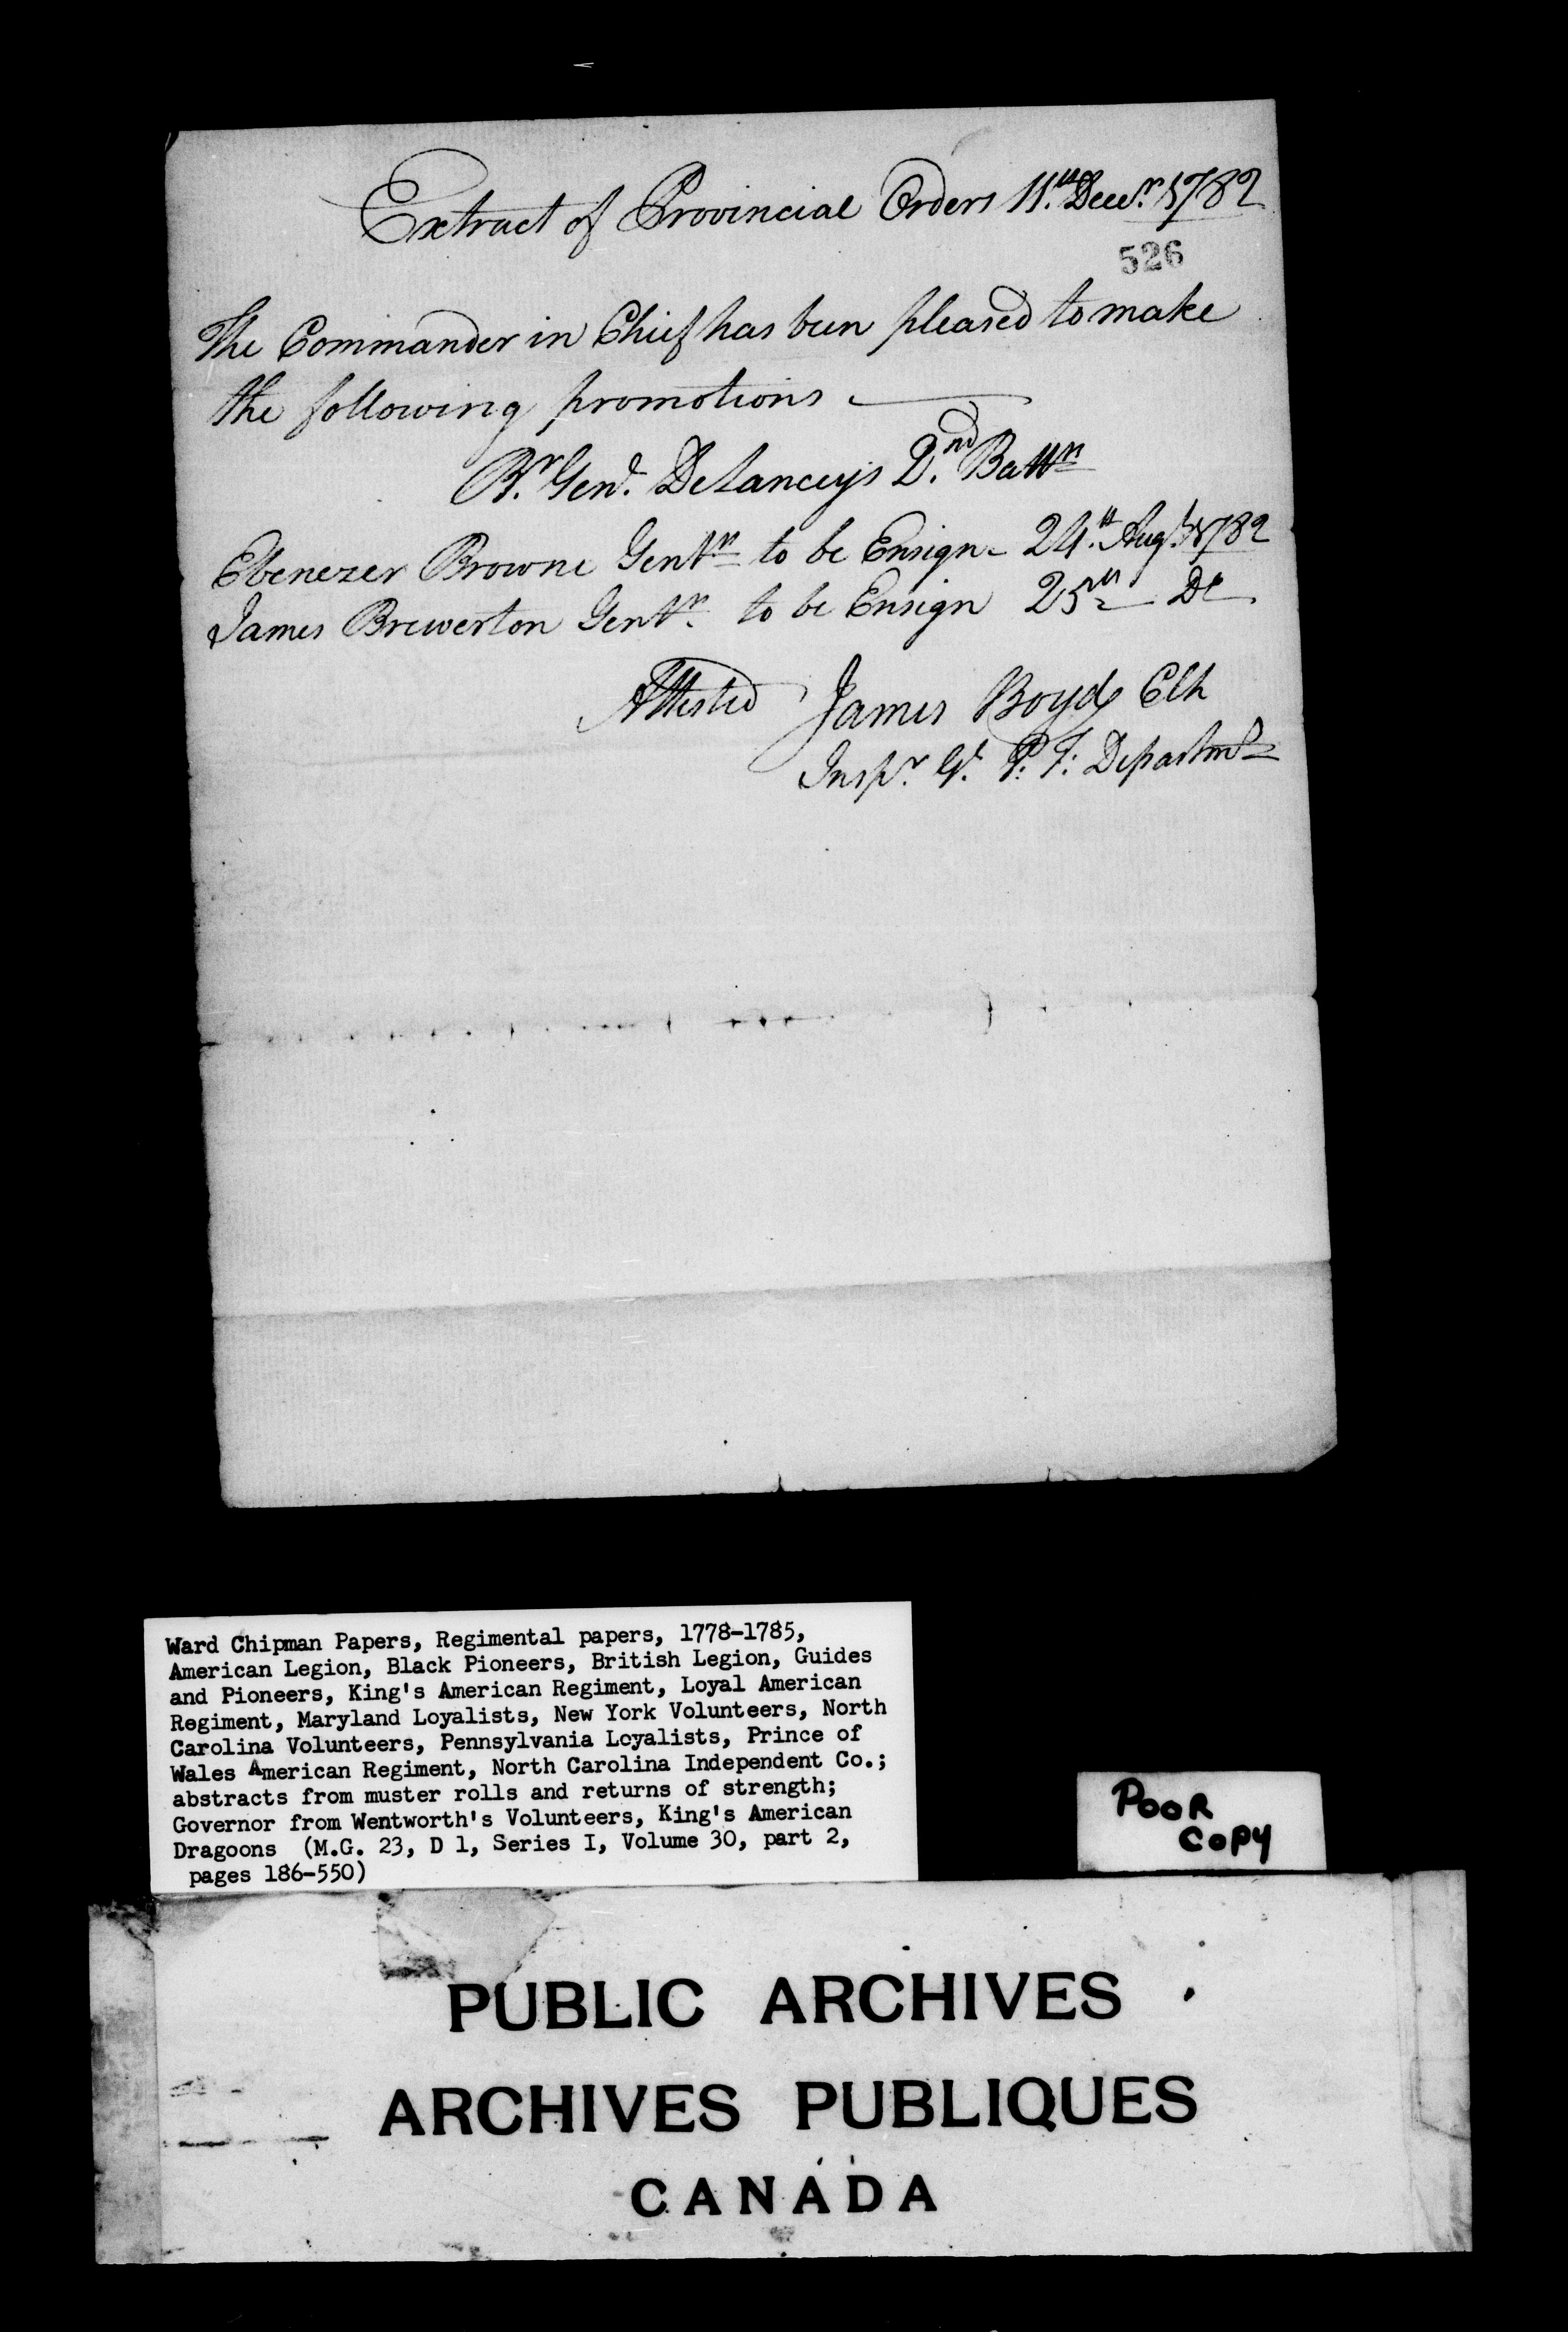 Extract of Provincial Orders 11.th Decr. 1782
526
The Commander in Chief has been pleased to make
the following promotions
Br. Genl. DeLanceys 2.nd Battn
Ebenezer Browne Gentn to be Ensign - 24.th Augt. 1782
James Brewerton Gentn. to be Ensign 25th Do
Attested James Boyd Clk
Inspr. Gl. P: F: Departmt
Ward Chipman Papers, Regimental papers, 1778-1785,
American Legion, Black Pioneers, British Legion, Guides
and Pioneers, King's American Regiment, Loyal American
Regiment, Maryland Loyalists, New York Volunteers, North
Carolina Volunteers, Pennsylvania Loyalists, Prince of
Wales American Regiment, North Carolina Independent Co.;
abstracts from muster rolls and returns of strength;
Governor from Wentworth's Volunteers, King's American
Dragoons (M.G. 23, D 1, Series I, Volume 30, part 2,
pages 186-550)
POOR
COPY
PUBLIC ARCHIVES
ARCHIVES PUBLIQUES
CANADA